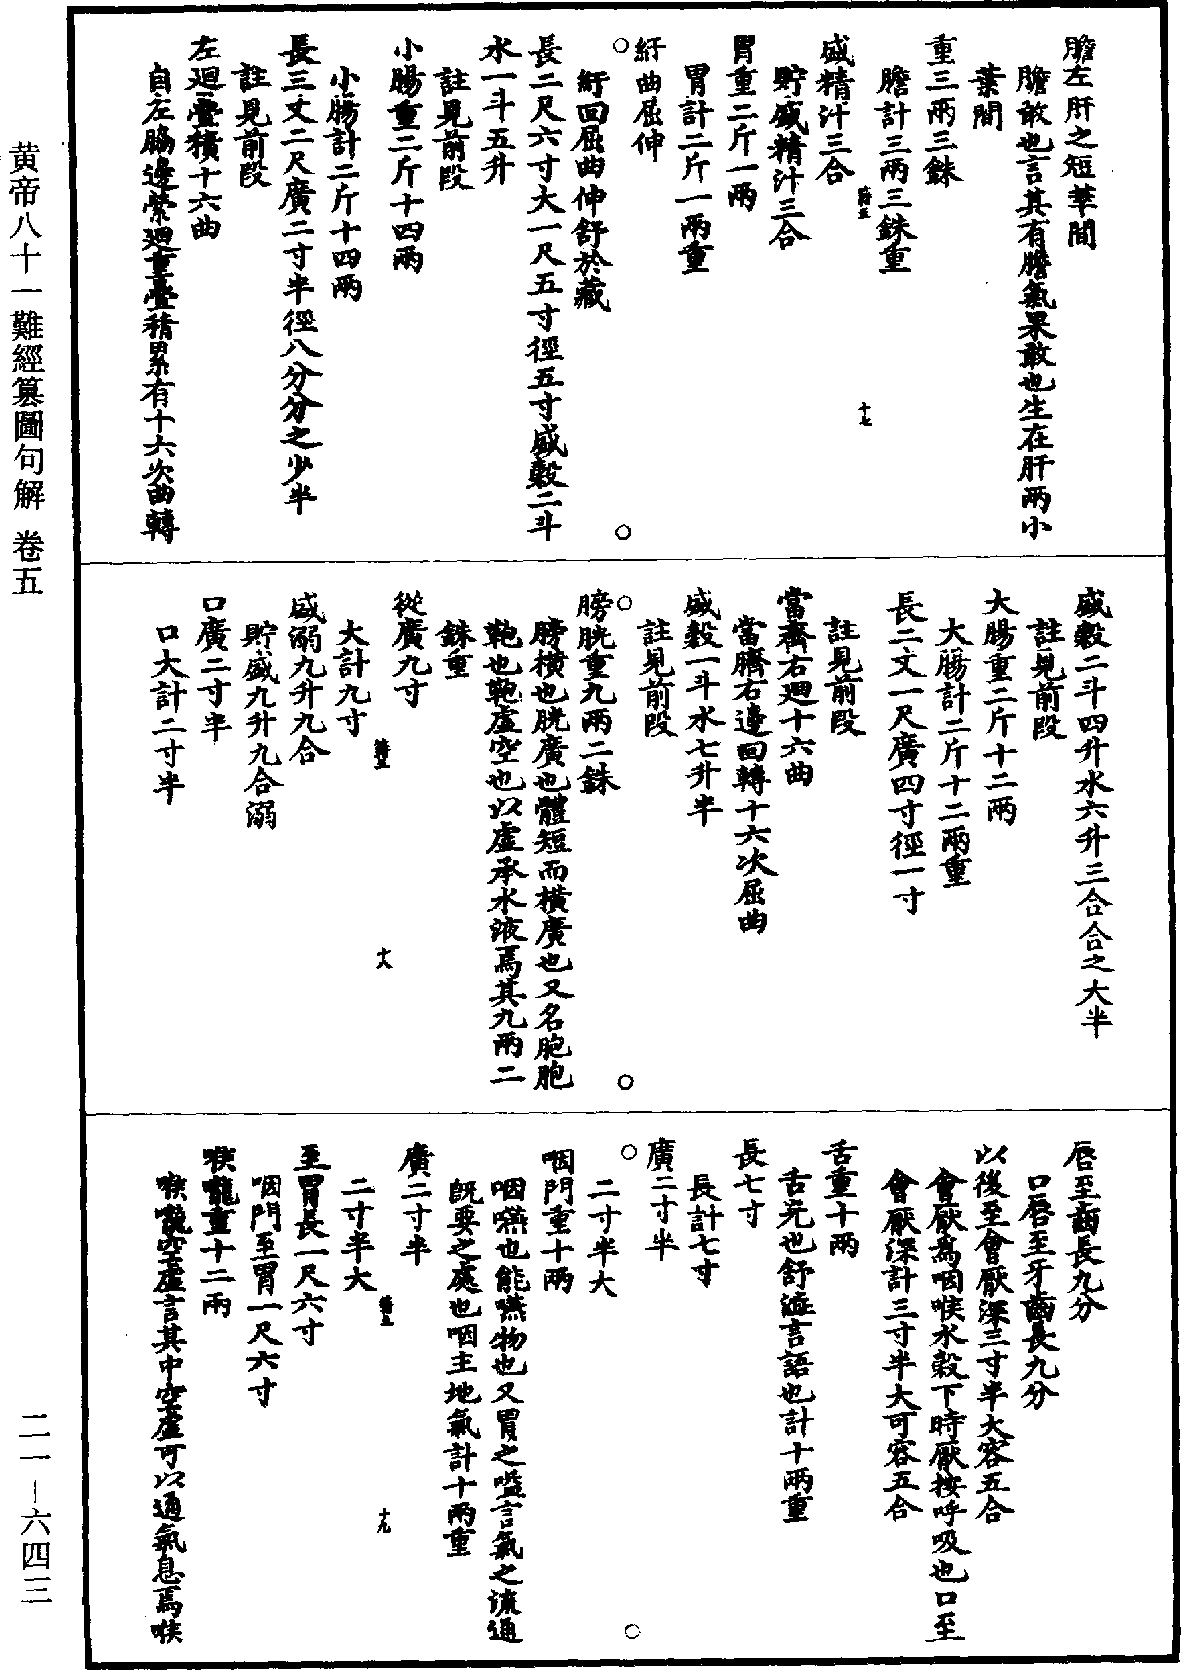 黄帝八十一難經纂圖句解 卷五
二一—六四三
膽左肝之短葉間
膽敢也言其有膽氣果敢也生在肝兩小
葉間
重三兩三銖
膽計三兩三銖重
盛精汁三合
貯盛精汁三合
胃重二斤一兩
胃計二斤一兩重
紆曲屈伸
紆回屈曲伸舒於藏
長二尺六寸大一尺五寸徑五寸盛穀二斗
水一斗五升
註見前段
小腸重二斤十四兩
小腸計二斤十四兩
長三丈二尺廣二寸半徑八分分之少半
註見前段
左廻疊積十六曲
自左脇邊縈廻重疊積累有十六次曲轉
十七
盛穀二斗四升水六升三合合之大半
註見前段
大腸重二斤十二兩
大腸計二斤十二兩重
長二丈一尺廣四寸徑一寸
註見前段
當齊右廻十六曲
當臍右邊回轉十六次屈曲
盛穀一斗水七升半
註見前段
膀胱重九兩二銖
膀橫也胱廣也體短而橫廣也又名胞胞
鞄也鞄虛空也以虛承水液焉其九兩二
銖重
從廣九寸
大計九寸
盛溺九升九合
貯盛九升九合溺
口廣二寸半
口大計二寸半
十八
唇至齒長九分
口唇至牙齒長九分
以後至會厭深三寸半大容五合
會厭爲咽喉水穀下時厭按呼吸也口至
會厭深計三寸半大可容五合
舌重十兩
舌兌也舒漩言語也計十兩重
長七寸
長計七寸
廣二寸半
二寸半大
咽門重十兩
咽嚥也能嚥物也又胃之嗌言氣之流通
旣要之處也咽主地氣計十兩重
廣二寸半
二寸半大
至胃長一尺六寸
咽門至胃一尺六寸
喉嚨重十二兩
喉嚨空虛言其中空虛可以通氣息焉喉
十九